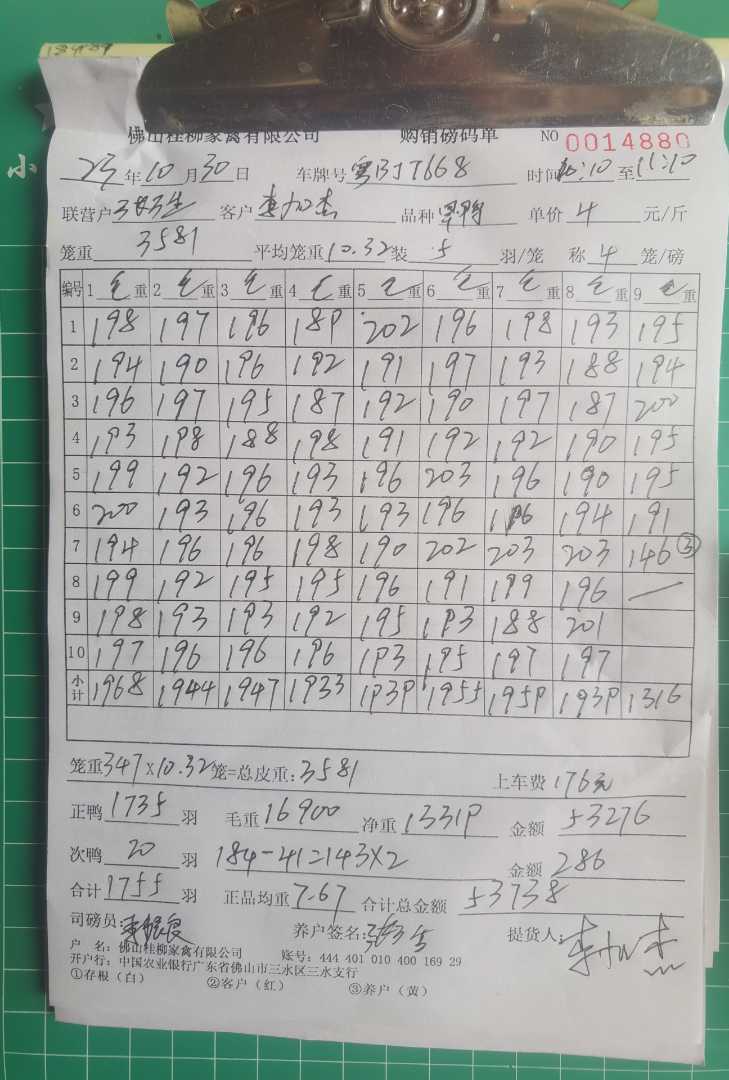 小
佛山桂柳家禽有限公司 购销磅码单 NO 0014880
23年10月30日 车牌号 粤BJ7668 时间 :10 至 11:10
联营户 客户 李加杰 品种 单价 4 元/斤
笼重 3581 平均笼重 10.32 装 5 羽/笼 称 4 笼/磅
编号 1 毛重 2 毛重 3 毛重 4 毛重 5 毛重 6 毛重 7 毛重 8 毛重 9 毛重
1 198 197 196 189 202 196 198 193 195
2 194 190 196 192 191 197 193 188 194
3 196 197 195 187 192 190 197 187 200
4 193 198 188 198 191 192 192 190 195
5 199 192 196 193 196 203 196 190 195
6 200 193 196 193 193 196 196 194 191
7 194 196 196 198 190 202 203 203 146 ③
8 199 192 195 195 196 191 199 196 —
9 198 193 193 192 195 193 188 201
10 197 196 196 196 193 195 197 197
小计 1968 1944 1947 1933 1939 1955 1959 1939 1316
笼重 347×10.32 笼=总皮重: 3581 上车费 176元
正鸭 1735 羽 毛重 16900 净重 13319 金额 53276
次鸭 20 羽 184-41=143×2 金额 286
合计 1755 羽 正品均重 7.67 合计总金额 53738
司磅员: 养户签名: 提货人: 李加杰
户 名: 佛山桂柳家禽有限公司 账号: 444 401 010 400 169 29
开户行: 中国农业银行广东省佛山市三水区三水支行
①存根(白) ②客户(红) ③养户(黄)